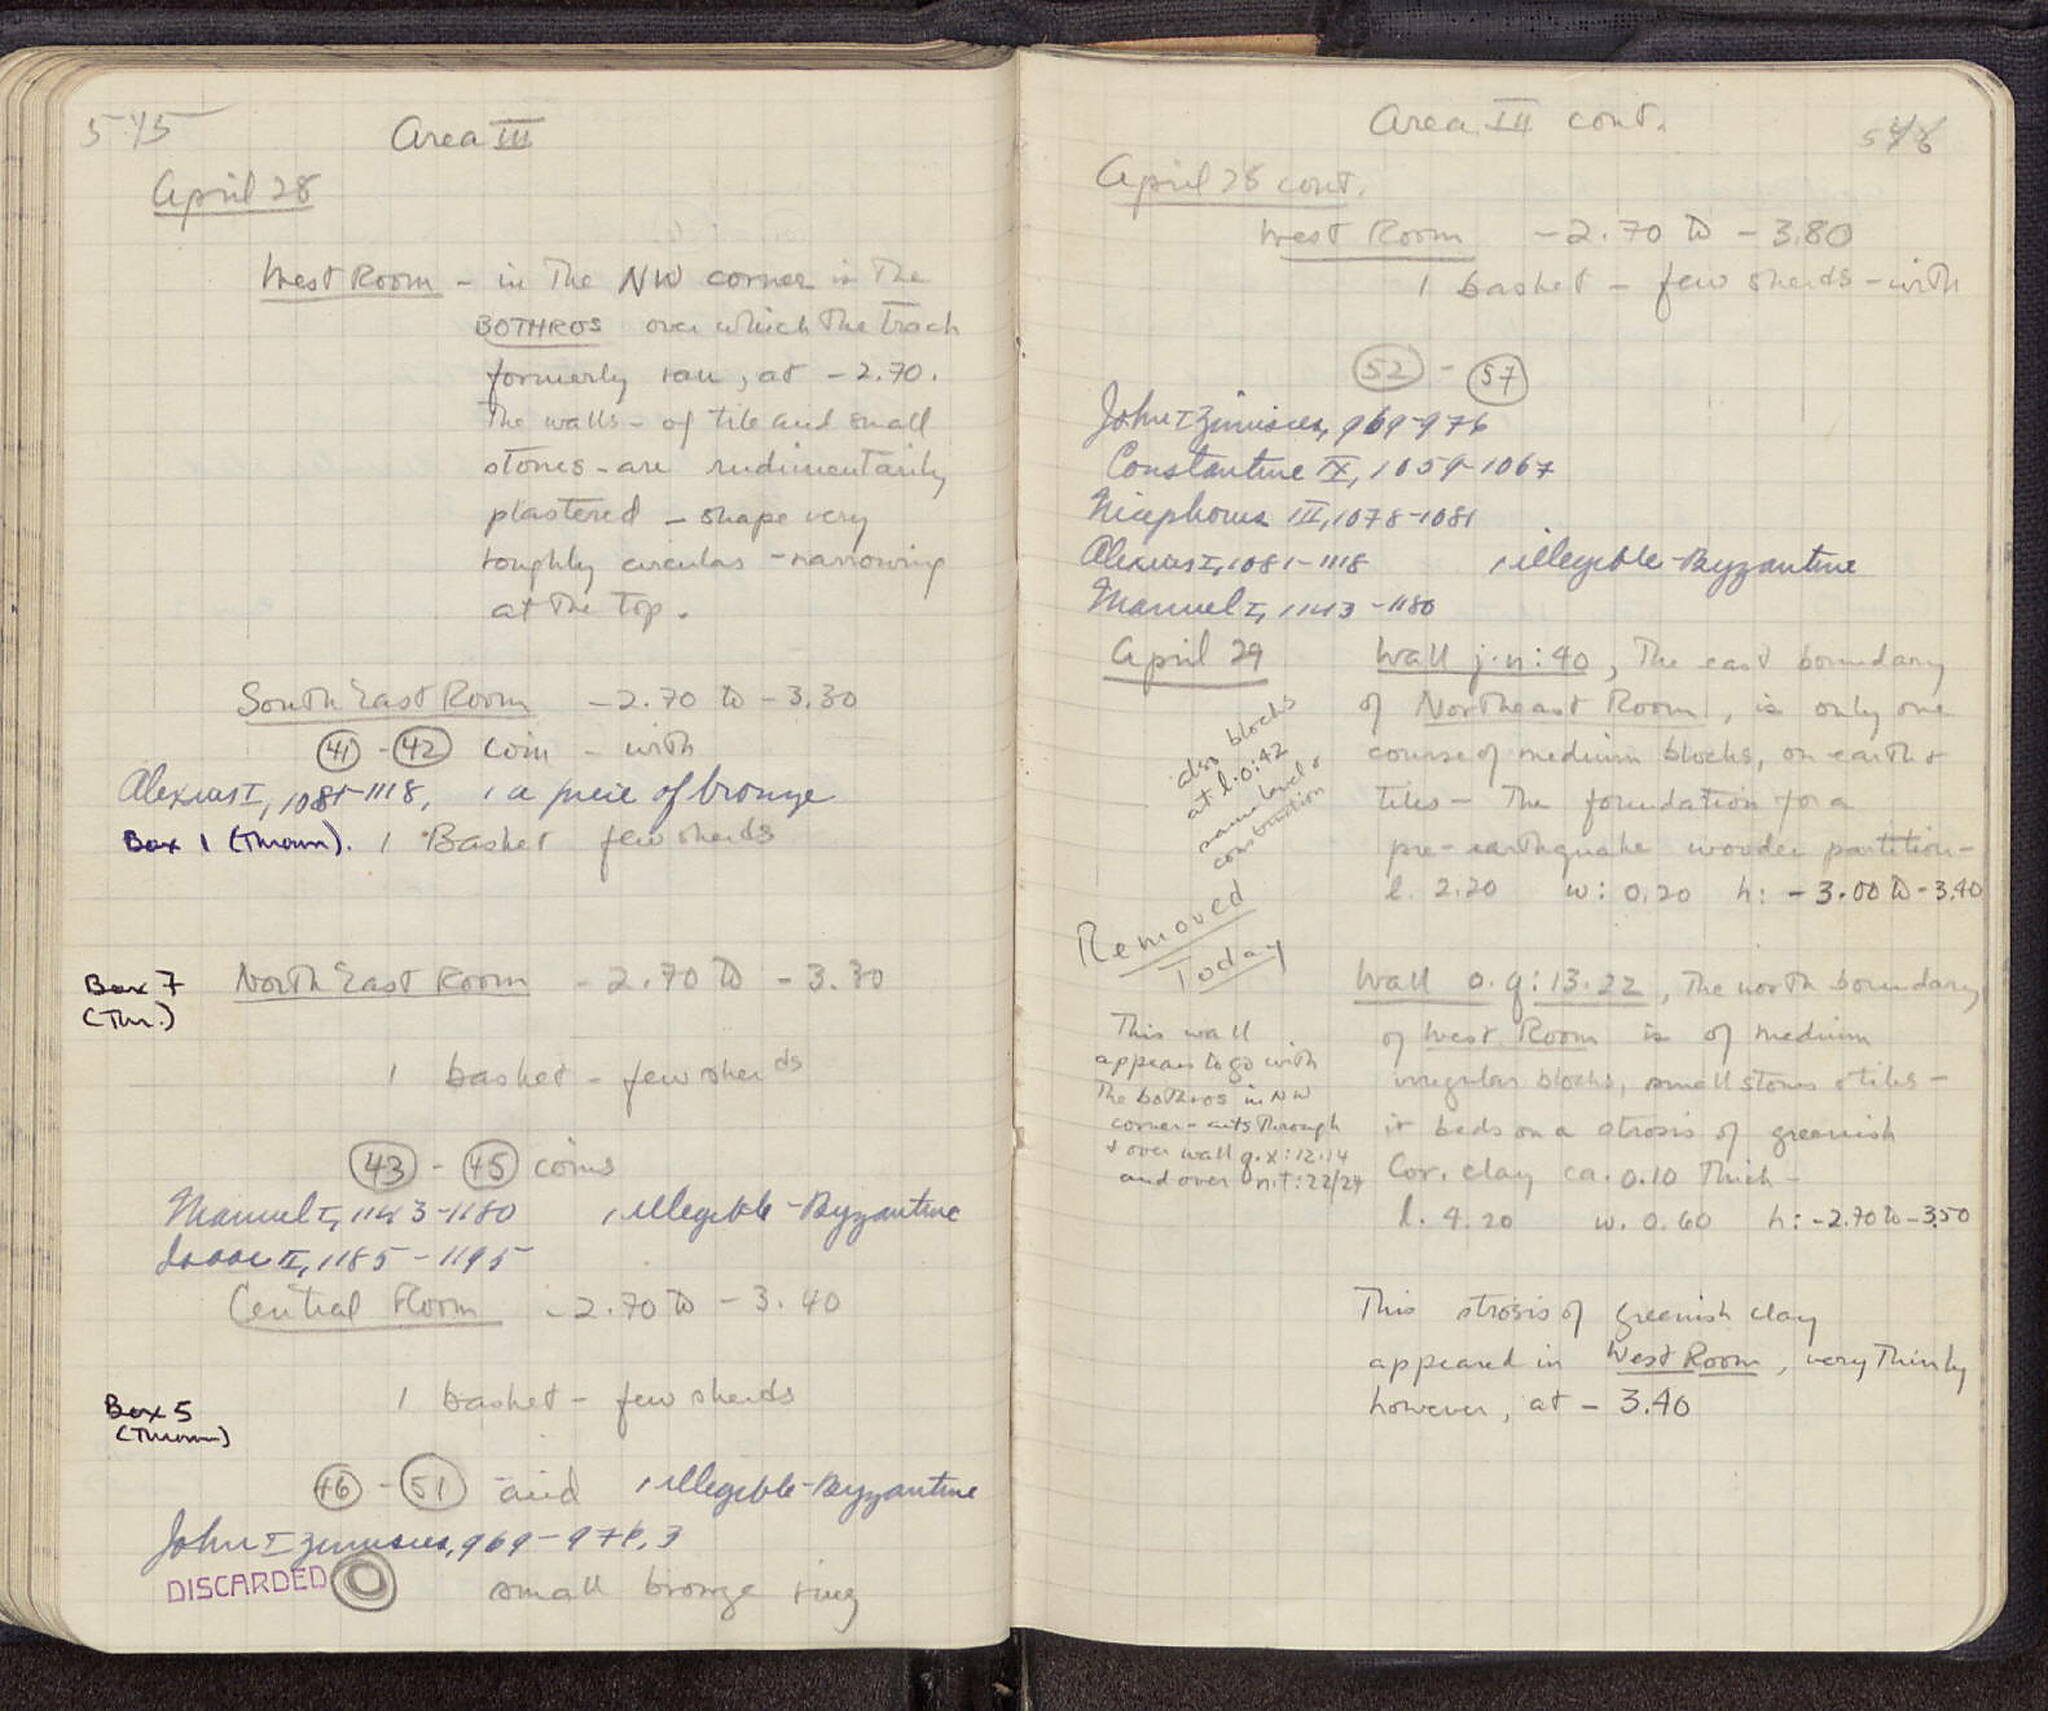 575
Area III
April 28
West Room - in the NW corner is the
BOTHROS over which the track
formerly ran, at - 2.70.
The walls - of tile and small
stones - are rudimentarily
plastered - shape very
roughly circular - narrowing
at the top.
South East Room -2.70 to -3.30
41 - 42 coin - with
Alexius I, 1081-1118, 1 a piece of bronze
Box 1 (Thrown). 1 Basket few sherds
Box 7
(Thr.)
North East Room -2.70 to -3.30
1 basket - few sherds
43 - 45 coins
Manuel I, 1143-1180 1 illegible-Byzantine
Isaac II, 1185-1195
Central Room -2.70 to -3.40
1 basket - few sherds
Box 5
(Thrown)
46 - 51 and 1 illegible-Byzantine
John I Zimisces, 969-976, 3
DISCARDED small bronze ring
Area III cont.
April 28 cont.
West Room -2.70 to -3.80
1 basket - few sherds - with
52 - 57
John I Zimisces, 969-976
Constantine X, 1059-1067
Nicephorus III, 1078-1081
Alexius I, 1081-1118 1 illegible-Byzantine
Manuel I, 1143-1180
April 29
Wall j.n:40, the east boundary
of Northeast Room, is only one
course of medium blocks, on earth +
tiles - The foundation for a
pre-earthquake wooden partition -
l. 2.20 w: 0.20 h: -3.00 to -3.40
also blocks
at l.o:42
same level +
construction
Removed
Today
Wall o.q:13.22, the north boundary
of West Room is of medium
irregular blocks, small stones + tiles -
it beds on a strosis of greenish
Cor. clay ca. 0.10 thick -
l. 4.20 w. 0.60 h: -2.70 to -3.50
This wall
appears to go with
the bothros in NW
corner - cuts through
+ over wall q.x:12.14
and over n.t:22/24
This strosis of greenish clay
appeared in West Room, very thinly
however, at - 3.40